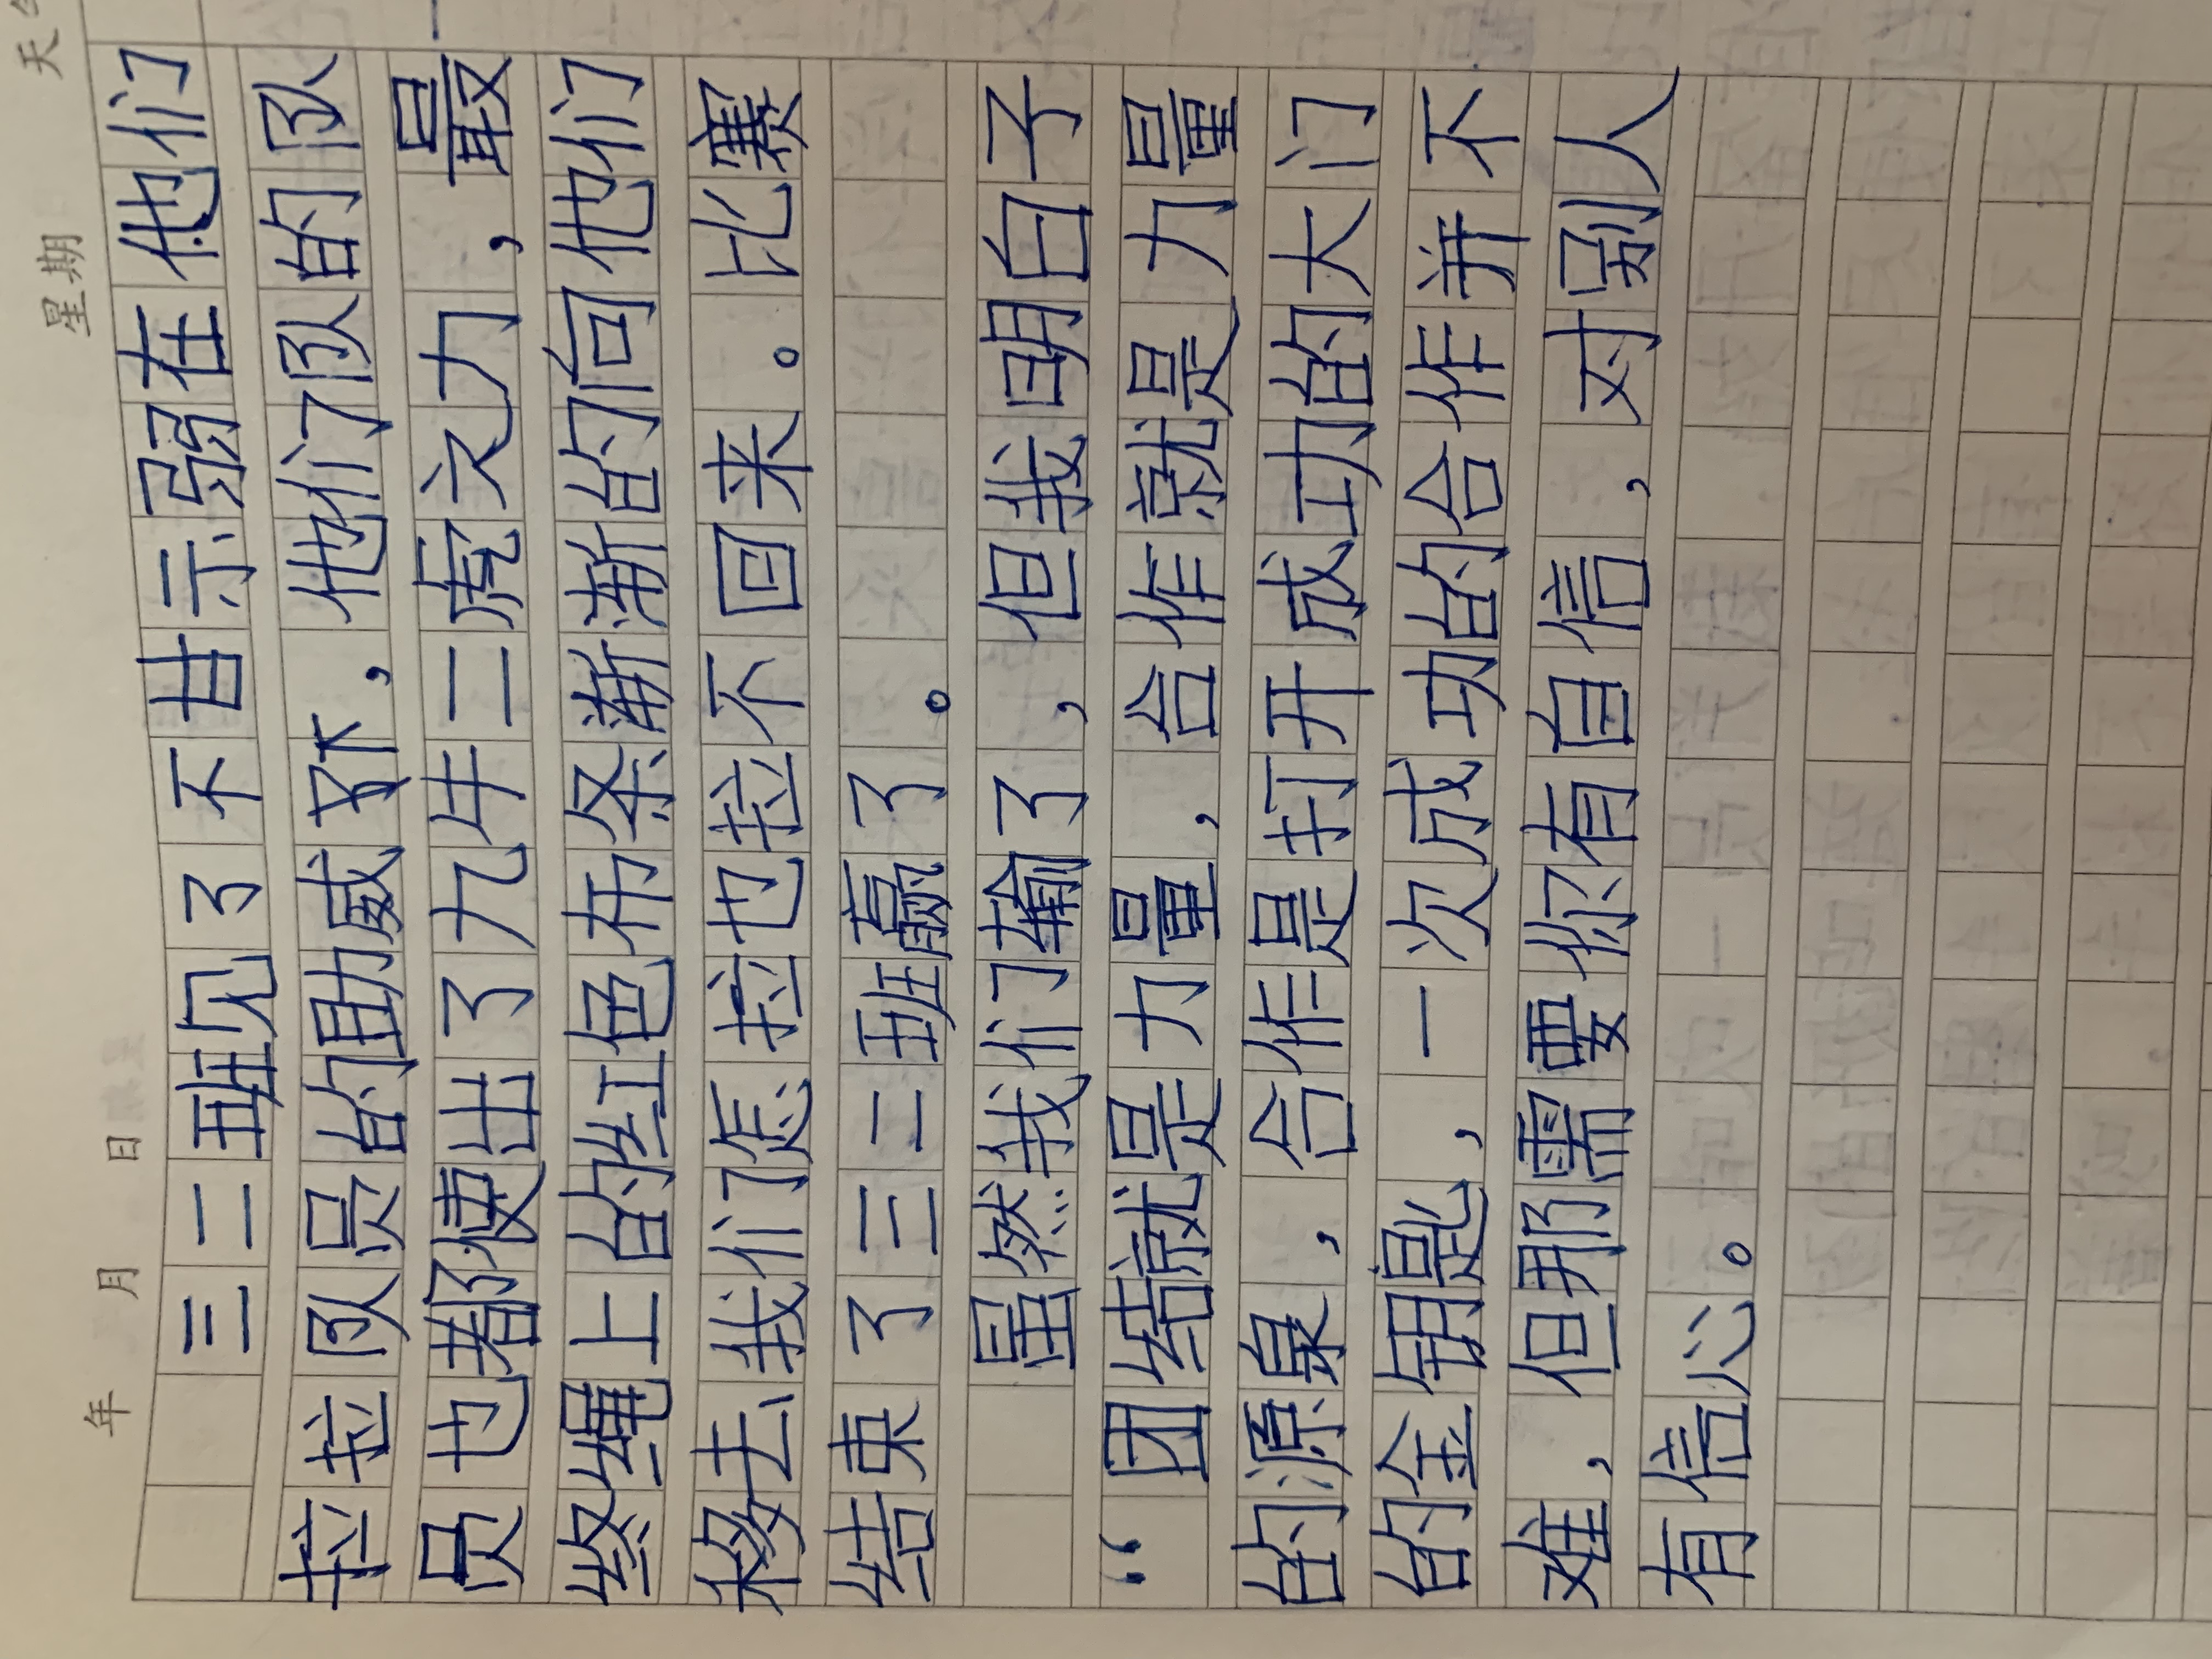 年 月 日 星期 天
三二班见了不甘示弱在他们
拉拉队员的助威下,他们队的队
员也都使出了九牛二虎之力,最
终绳上的红色布条渐渐的向他们
移去我们怎拉也拉不回来。比赛
结束了三二班赢了。
虽然我们输了,但我明白子
“团结就是力量,合作就是力量
的源泉,合作是打开成功的大门
的金钥匙,一次成功的合作并不
难,但那需要你有自信,对别人
有信心。